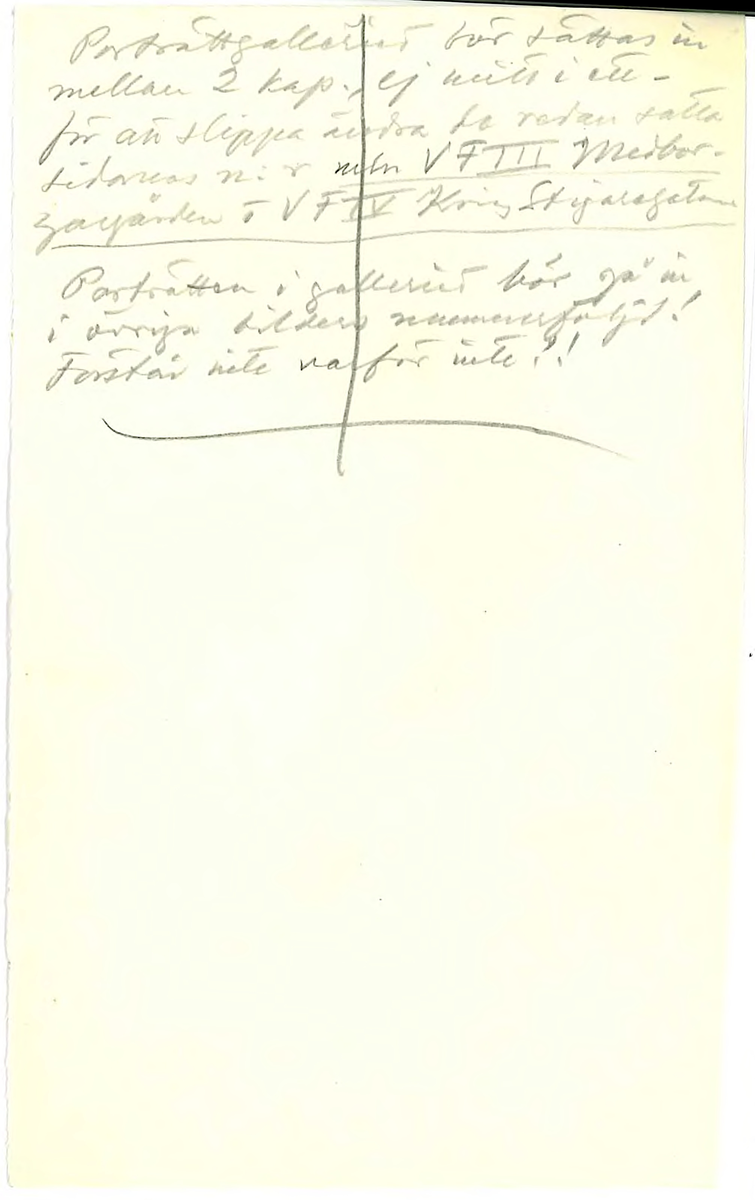 Porträttgalleriet bör sättas in
mellan 2 kap., ej mitt i ett –
för att slippa ändra de redan satta
sidornas nr mln VF III Medbor-
gargården o VF IV Kring Stigaregatan
Porträtten i galleriet bör gå in
i övriga bilders nummerföljd!
Förstår inte varför inte?!